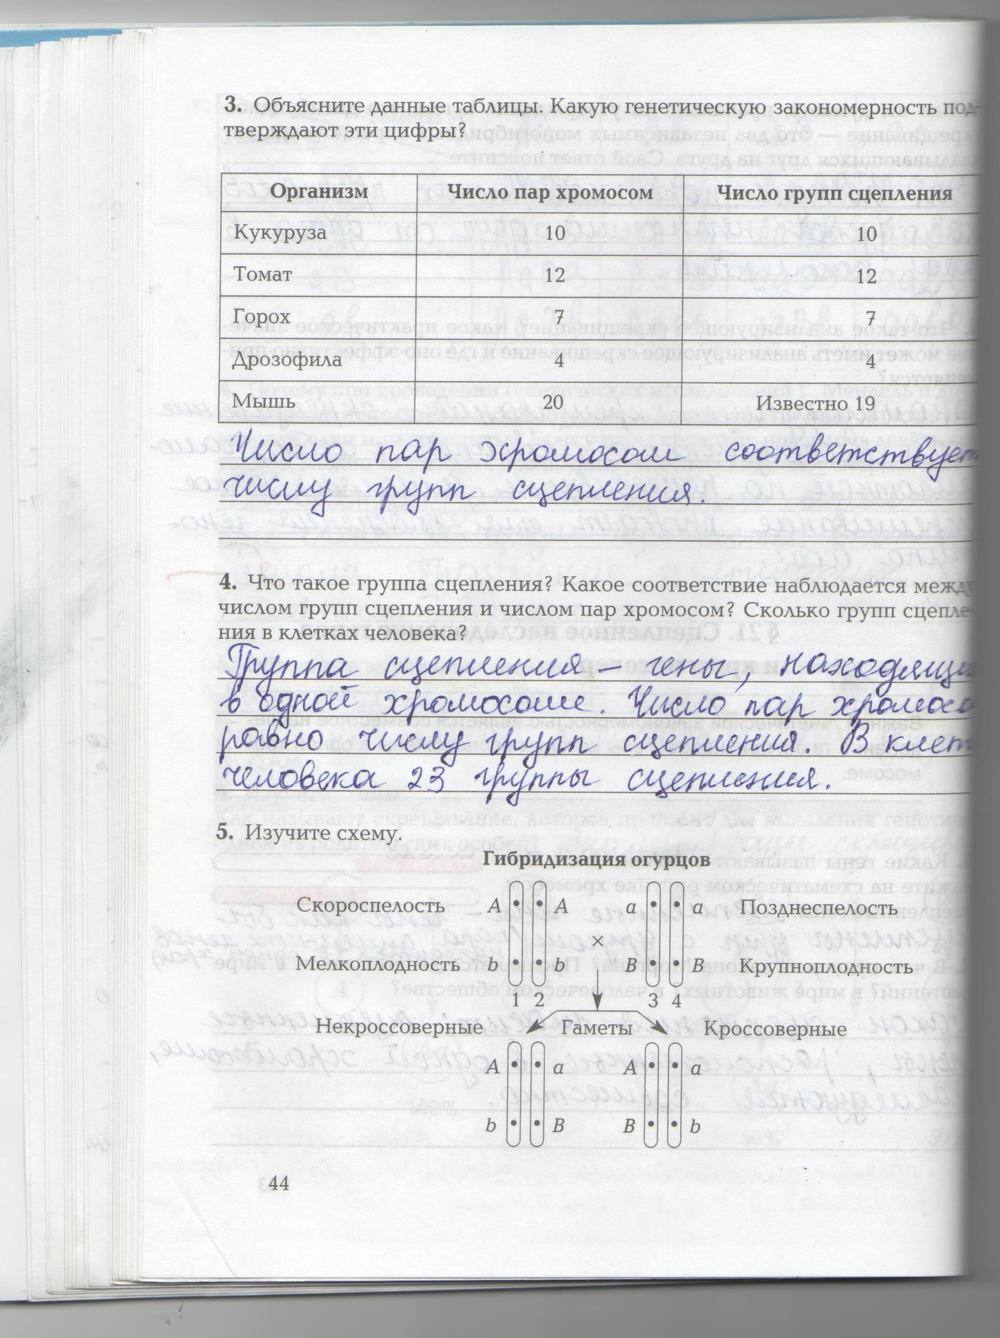 3. Объясните данные таблицы. Какую генетическую закономерность под-
тверждают эти цифры?
Организм Число пар хромосом Число групп сцепления
Кукуруза 10 10
Томат 12 12
Горох 7 7
Дрозофила 4 4
Мышь 20 Известно 19
Число пар хромосом соответствует
числу групп сцепления.
4. Что такое группа сцепления? Какое соответствие наблюдается между
числом групп сцепления и числом пар хромосом? Сколько групп сцепле-
ния в клетках человека?
Группа сцепления – гены, находящи
в одной хромосоме. Число пар хромосо
равно числу групп сцепления. В клет
человека 23 группы сцепления.
5. Изучите схему.
Гибридизация огурцов
Скороспелость A A a a Позднеспелость
×
Мелкоплодность b b B B Крупноплодность
1 2 3 4
Некроссоверные Гаметы Кроссоверные
A a A a
b B B b
44